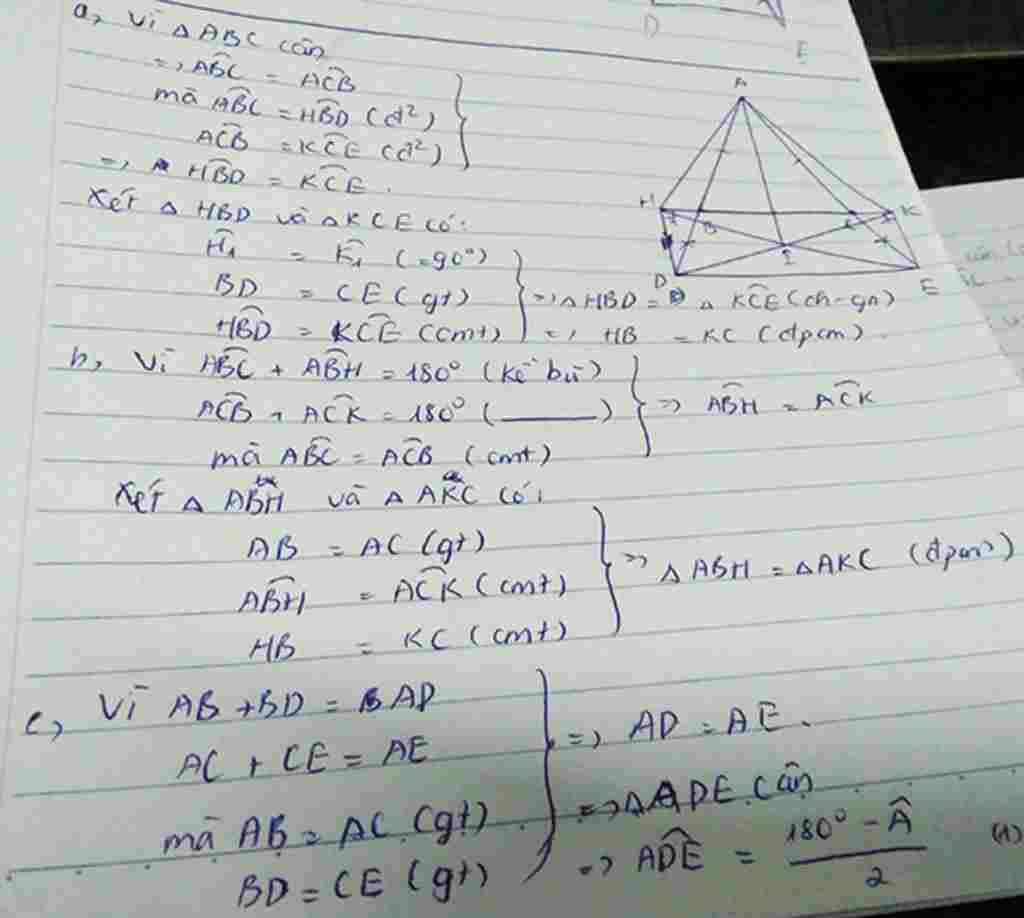 a, Vì △ABC cân
=> A͡BC = A͡CB
mà A͡BC = H͡BD (đ²)
A͡CB = K͡CE (đ²)
=> H͡BD = K͡CE.
Xét △ HBD và △KCE có:
Ĥ₁ = K̂₁ (=90°)
BD = CE (gt)
H͡BD = K͡CE (cmt)
=> △HBD = △ K͡CE (ch-gn)
=> HB = KC (đpcm).
b, Vì A͡BC + A͡BH = 180° (kề bù)
A͡CB + A͡CK = 180° (______)
mà A͡BC = A͡CB (cmt)
=> A͡BH = A͡CK
Xét △ ABH và △ AKC có:
AB = AC (gt)
A͡BH = A͡CK (cmt)
HB = KC (cmt)
=> △ABH = △AKC (đpcm)
c, Vì AB + BD = AD
AC + CE = AE
mà AB = AC (gt)
BD = CE (gt)
=> AD = AE.
=> △ADE cân
=> A͡DE = (180° - Â)/2 (1)
A
H
B
C
K
I
D
E
D
E